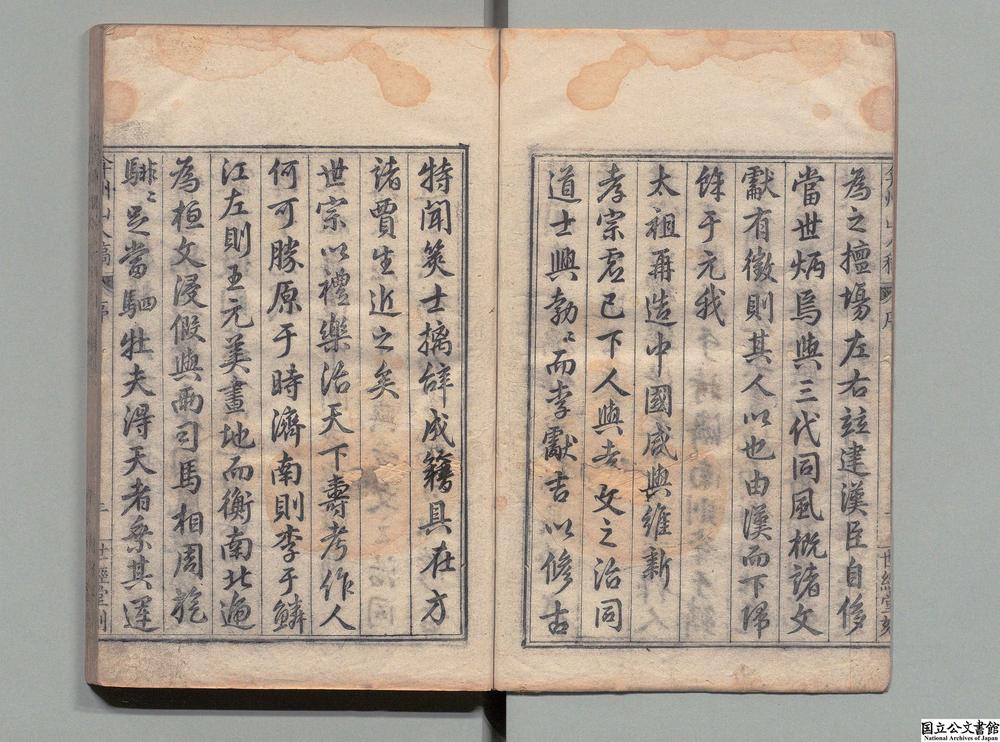 為之擅場左右玆建漢臣自侈
當世炳焉與三代同風概諸文
獻有徵則其人以也由漢而下歸
餘于元我
太祖再造中國咸與維新
孝宗君巳下人與考文之治同
道士興勃〻而李獻吉以脩古
特聞筴士摛辭成籍具在方
諸賈生近之矣
世宗以禮樂治天下壽考作人
何可勝原于時濟南則李于鱗
江左則王元美畫地而衡南北遞
為桓文浸假與兩司馬相周旋
騑〻足當駟牡夫得天者乘其運
弇州山人稿
序
世經堂刻
国立公文書館
National Archives of Japan